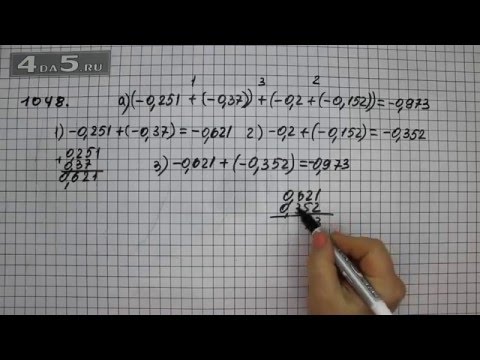 4DA5.RU
1 3 2
1048. а) (-0,251 + (-0,37)) + (-0,2 + (-0,152)) = -0,973
1) -0,251 + (-0,37) = -0,621 2) -0,2 + (-0,152) = -0,352
+ 0,251
0,37
0,621
3) -0,621 + (-0,352) = -0,973
0,621
0,352
3